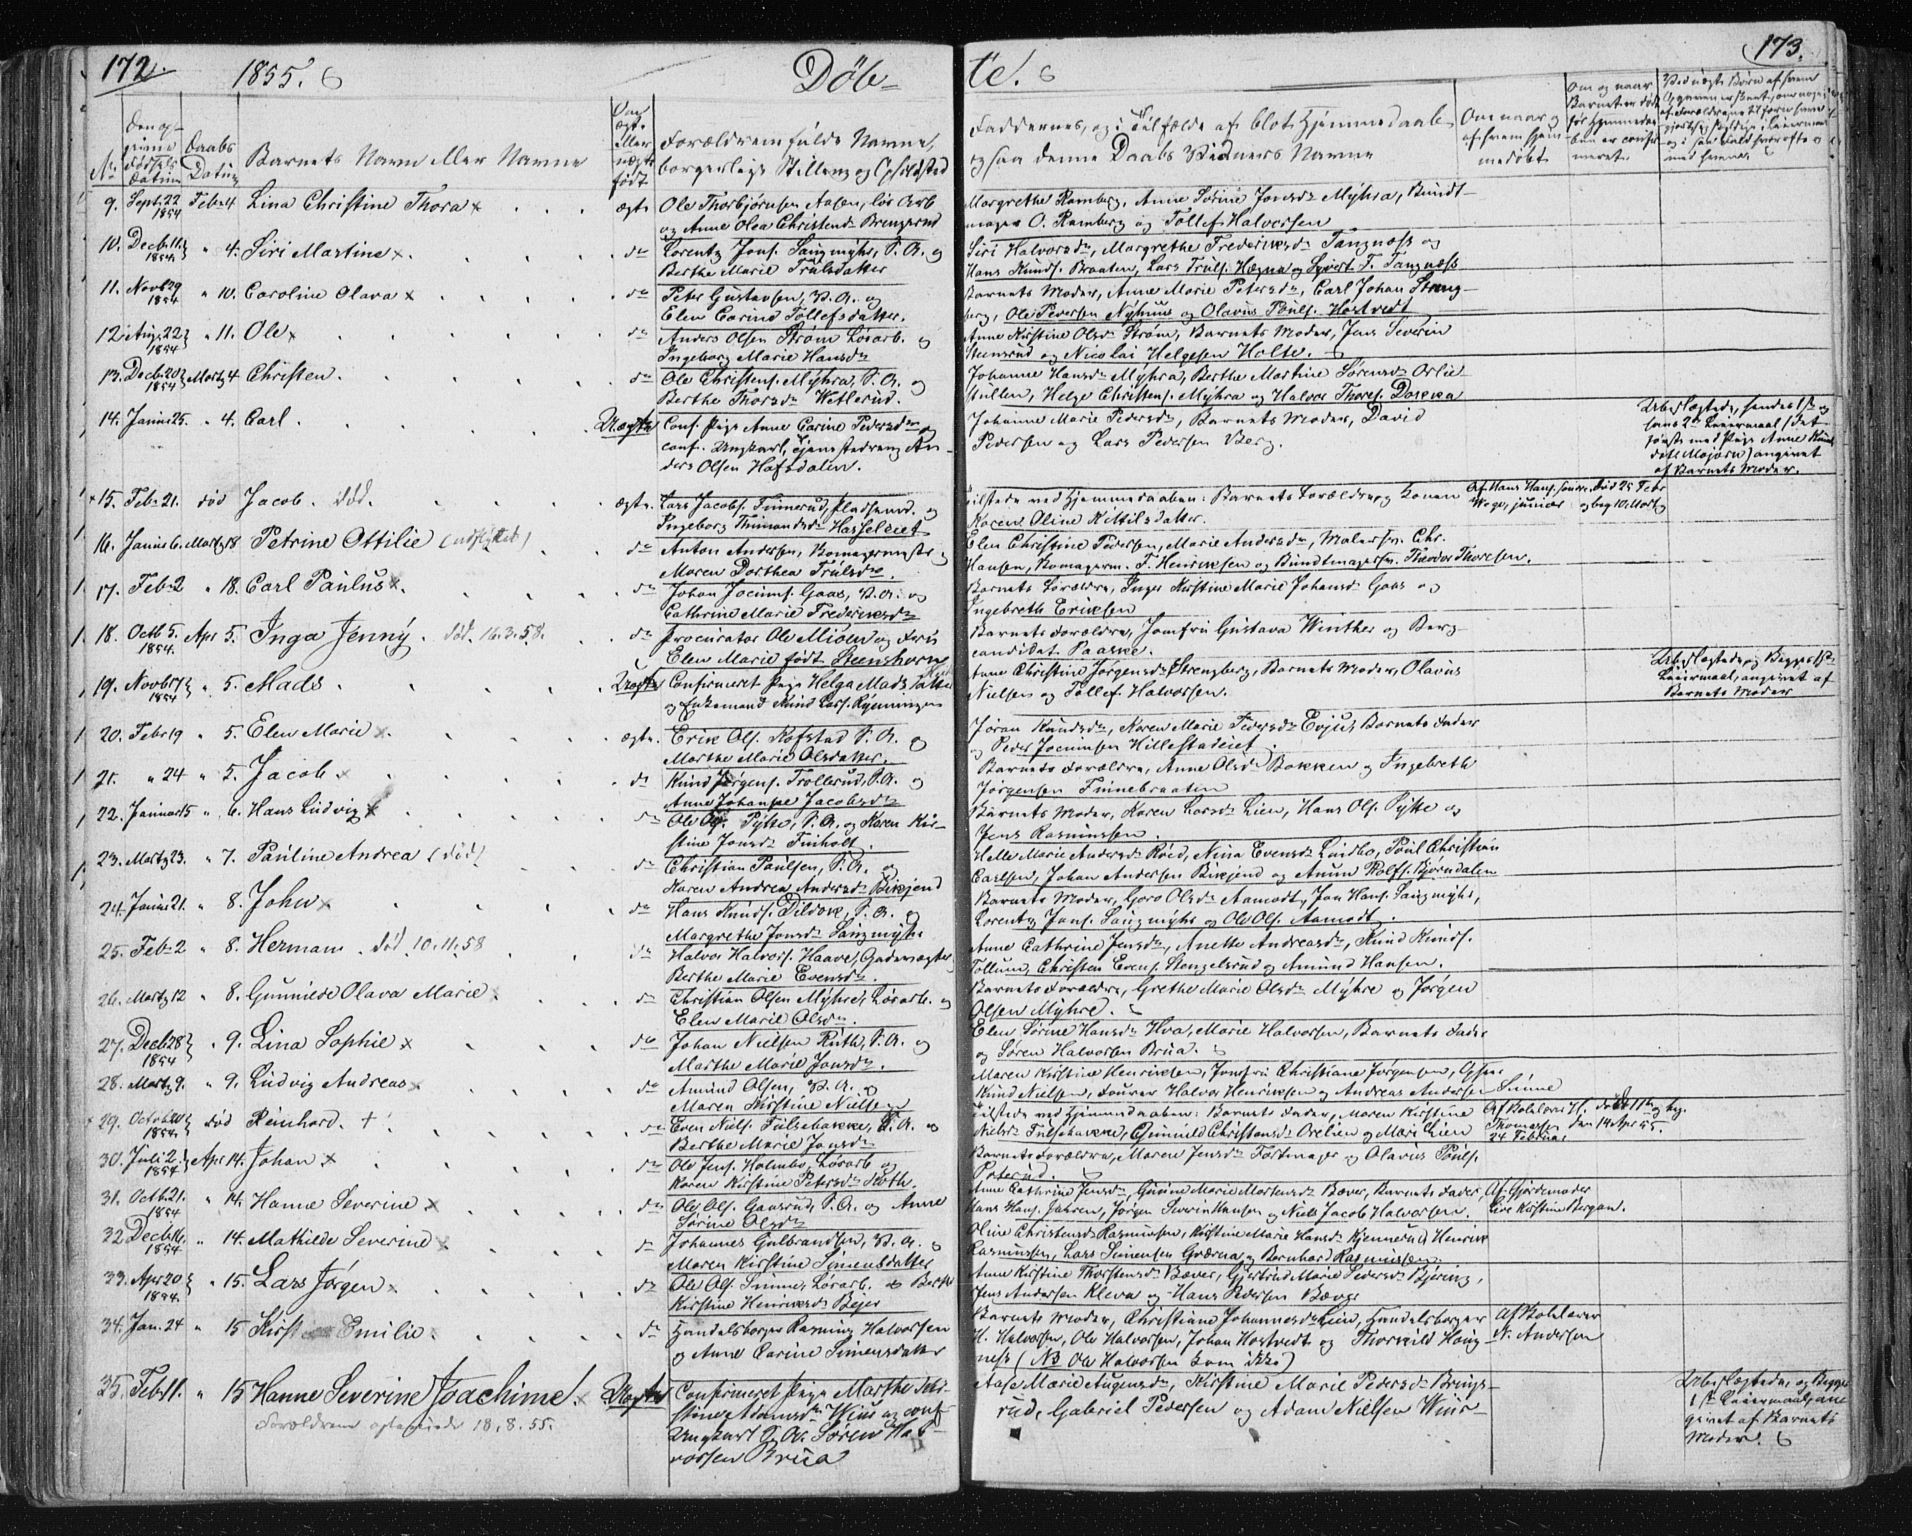 172.
1855.
Døb-
te.
173.
No.
Den op-
givne
Fødsels
Datum
Daabs
Datum
Barnets Navn eller Navne
Om
ægte
eller
uægte
født
Forældrenes fulde Navne,
borgerlige Stilling og Opholdssted
Faddernes, og i Tilfælde af blot Hjemmedaab
ogsaa denne Daabs Vidners Navne
Om naar og
af hvem hjem-
medøbt
Om og naar
Barnet er død
før Hjemmedaa-
ben er confir-
meret.
9. Sept. 22 1854 Feb. 4 Lina Christine Thora x ægte Ole Thorbjørnsen Aasen, løs Arb
og Anne Olea Christensd.
Margrethe Ramberg, Anne Sørine Jonsd. Myhra, Bundt-
mager O. Ramberg og Tollef Halvorsen
10. Decb. 11 1854 " 4. Siri Martine x do Lorentz Jons. Saugmyhr, P. A. og
Berthe Marie Trulsdatter
Siri Halvorsd., Margrethe Frederiksd. Tangnæss og
Hans Knuds. Braaten, Lars Truls. Hægna og Syvert F. Tangnæss
11. Novb. 29 1854 " 10. Caroline Olava x do Peter Gustavsen, P. A. og
Elen Carine Tollefsdatter.
Barnets Moder, Anne Marie Petersd., Carl Johan Streng-
berg, Ole Pedersen Nyhuus og Olavus Pouls. Hostvedt
12. Aug. 22 1854 " 11. Ole x do Anders Olsen Strøm Løsarb. og
Ingeborg Marie Hansd.
Anne Kirstine Olsd. Strøm, Barnets Moder, Jens Severin
Steensrud og Nicolai Helgesen Holte.
13. Decb. 20 1854 Marts 4 Christen do Ole Christens. Myhra, P. A. og
Berthe Thorsd. Wetlerud.
Johanne Hansd. Myhra, Berthe Martine Sørensd. Orlie
Mullen, Helge Christens. Myhra og Halvor Thores. Dokka
14. Januar 25. " 4. Carl Uægte Conf. Pige Anne Carine Pedersd. og
conf. Ungkarl, Tjenestedreng An-
ders Olsen Hafsdalen.
Johanne Marie Pedersd., Barnets Moder, David
Pedersen og Lars Pedersen Berg.
Ubeslægtede, hendes 1ste og
hans 2det Leiermaal (det
første med Pige Anne Knuds
datt. Mojørn) angivet
af Barnets Moder.
15. Feb. 21. død Jacob. død. ægte Lars Jacobs. Finnerud, Pladsmd. og
Ingeborg Thimandsd. Hasseleiet
Tilstede ved Hjemmedaaben: Barnets Forældre og Konen
Karen Oline Kittilsdatter.
Af Hans Hans.
Wege, junior
død 25 Febr
og beg 10 Marts
16. Januar 6. Marts 18 Petrine Ottilie (udflyttet) do Anton Andersen, Komagermester og
Maren Dorthea Trulsd.
Elen Christine Pedersen, Marie Andersd., Malersv. Chr.
Hansen, Komagerm. F. Henriksen og Bundtmagersv. Theodor Thoresen.
17. Feb. 2 " 18. Carl Paulus x. do Johan Jocums. Gaas, P. A. og
Cathrine Marie Frederiksd.
Barnets Forældre, Inger Kirstine Marie Johansd. Gaas og
Ingebreth Eriksen
18. Octb. 5. 1854. Apr. 5. Inga Jenny. død. 16.3.58. do Procurator Ole Mioen og Fru
Elen Marie født Steenshorn
Barnets Forældre, Jomfru Gustava Winther og Berg-
candidat Paaske.
19. Novb. 17 1854 " 5. Mads Uægte Confirmeret Pige Helga Mads Datter
og Enkemand Knud Lars. Rynningen
Anne Christine Jørgensd. Strengberg, Barnets Moder, Olavus
Nielsen og Tollef Halvorsen.
Ubeslægtede, Begges 1ste
Leiermaal, angivet af
Barnets Moder
20. Febr. 19 " 5. Elen Marie x. ægte. Erik Ols. Kofstad P. A. og
Marthe Marie Olsdatter.
Jøran Knudsd., Karen Marie Pedersd. Evju, Barnets Fader
og Peder Jocumsen Hillestadeiet.
21. " 24 " 5. Jacob x do Knud Jørgens. Trollerud, P. A. og
Anne Johanne Jacobsd.
Barnets Forældre, Anne Olsd. Bakken og Ingebreth
Jørgensen Finnebraaten
22. Januar 15 " 6. Hans Ludvig x do Ole Ols. Pytte, P. A. og Karen Kir-
stine Jonsd. Finholt.
Barnets Moder, Karen Larsd. Lien, Hans Ols. Pytte og
Jens Rasmussen.
23. Marts 23. " 7. Pauline Andrea (død) do Christian Paulsen, P. A. og
Karen Andrea Andersd. Bikjend
Helle Marie Andersd. Røed, Nina Evensd. Lindbo, Poul Christian
Carlsen, Johan Andersen Bikjend og Amun Rolfs. Bjørndalen
24. Januar 21. " 8. John x do Hans Knuds. Dildok, P. A. og
Margrethe Jonsd. Saugmyhr
Barnets Moder, Goro Olsd. Aamodt, Jon Hans. Saugmyhr,
Lorentz Jons. Saugmyhr og Ole Ols. Aamodt.
25. Feb. 2 " 8. Herman. død. 10.11.58 do Halvor Halvors. Haave, Gadevægter,
Berthe Marie Evensd.
Anne Cathrine Jensd., Anette Andreasd., Knud Knuds.
Tollum, Christen Evens. Stengelsrud og Amund Hansen.
26. Marts 12 " 8. Gunnilde Olava Marie x do Christian Olsen Myhre, Løsarb. og
Elen Marie Olsd.
Barnets Forældre, Grethe Marie Olsd. Myhre og Jørgen
Olsen Myhre.
27. Decb. 28 1854 " 9. Lina Sophie x do Johan Nielsen Ruth, P. A. og
Marthe Marie Jonsd.
Elen Sørine Hansd. Hva, Marie Halvorsen, Barnets Fader
og Søren Halvorsen Brua.
28. Marts 9. " 9. Ludvig Andreas x do Amund Olsen, P. A. og
Maren Kirstine Nielsen
Maren Kirstine Henriksen, Jomfru Christiane Jørgensen,
Knud Nielsen, Halvor Henriksen og Andreas Andersen Sinne
29. Octob. 20 1854. død Reinhard. + do Even Niels. Fulsebakke, P. A. og
Berthe Marie Jonsd.
Tilstede ved Hjemmedaaben: Barnets Fader, Maren Kirstine
Nielsd. Fulsebakke, Gunnild Christensd. Orelien og Mari Lien
Af Skolelærer H.
Thomassen
24 Februar
død 11te og beg.
den 14 Apr 55.
30. Juli 2. 1854 Apr. 14. Johan x do Ole Jens. Holmbo, Løsarb og
Karen Kirstine Petersd. Roth.
Barnets Forældre, Maren Jensd. Fortmager og Olavus Pouls.
Poterud.
31. Octb. 21. 1854 " 14. Hanne Severine x do Ole Ols. Gaasrud, P. A. og Anne
Sørine Olsd.
Anne Cathrine Jensd., Gurine Marie Mortensd. Bæver, Barnets Fader
Hans Hans. Jahren, Jørgen Severin Hansen og Niels Jacob Halvorsen.
Af Gjordemoder
Live Kirstine Bergan.
32. Decb. 16. 1854. " 14. Mathilde Severine x do Johannes Gulbrandsen, P. A. og
Maren Kirstine Simensdatter
Oline Christensd. Rasmussen, Kirstine Marie Hansd. Kjennerud, Henrik
Rasmussen, Lars Simensen Gværna og Bernhard Rasmussen.
33. Apr. 20 1854. " 15. Lars Jørgen x do Ole Ols. Sinne, Løsarb. og Berthe
Kirstine Henriksd. Beier
Anne Kirstine Thorstensd. Bæver, Gjertrud Marie Pedersd. Bjøring,
Jens Andersen Kleva og Hans Pedersen Bæver
34. Jan. 24 " 15 Kirst Emilie do Handelsborger Rasmus Halvorsen
og Anne Carine Simensdatter
Barnets Moder, Christiane Johannesd. Lien, Handelsborger
H. Halvorsen, Ole Halvorsen, Johan Hostvedt og Thorvild Houg-
ness (NB Ole Halvorsen kom ikke)
Af Skolelærer
N. Andersen
35. Feb. 11. " 15 Hanne Severine Joachime. x Uægte Confirmeret Pige Marthe Kir-
stine Adamsd. Wiur og conf.
Ungkarl P. A. Søren Hal-
vorsen Brua
Forældrene ægteviede 18.8.55.
Aase Marie Augensd., Kirstine Marie Pedersd. Brings-
rud, Gabriel Pedersen og Adam Nielsen Wiur
Ubeslægtede, og Begges
1ste Leiermaal, an-
givet af Barnets
Moder.